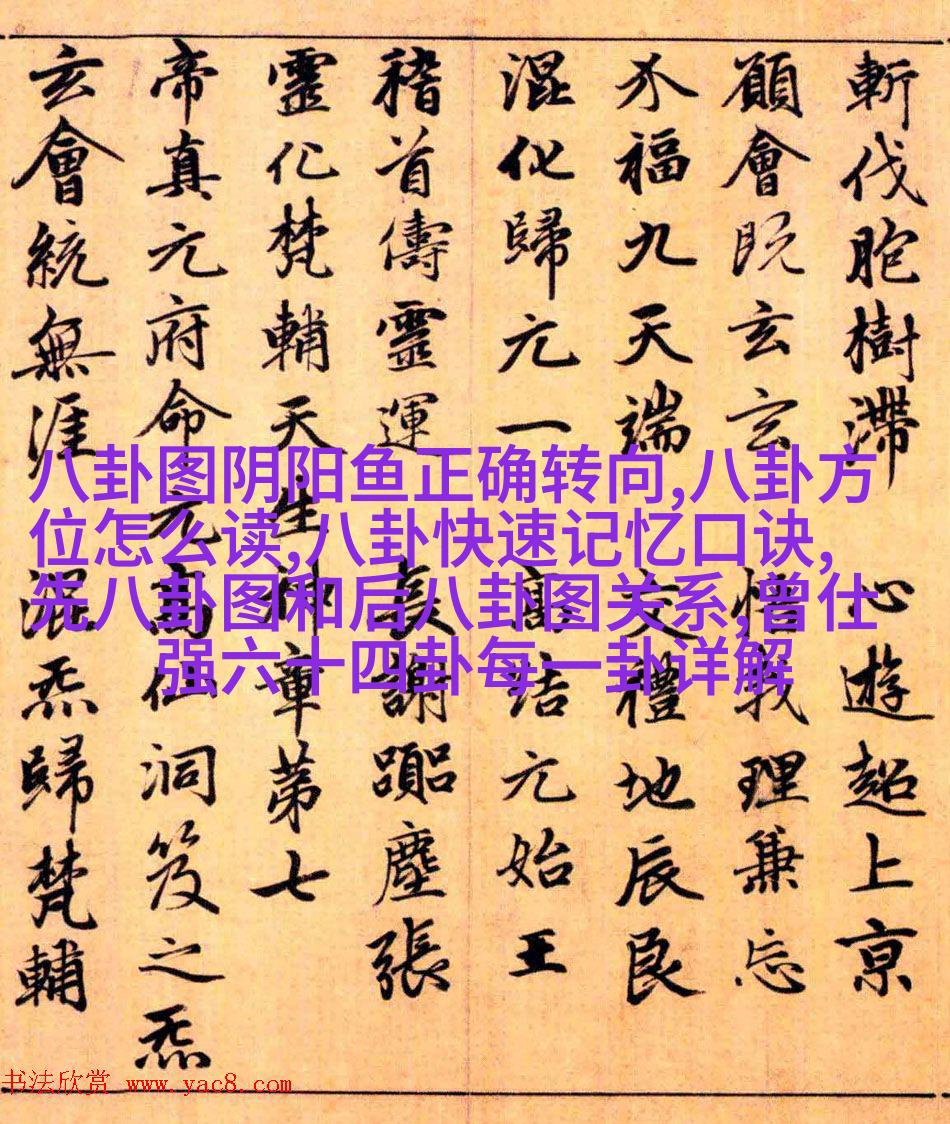 斬伐胞樹滯心遊超上京
願會既玄玄悟我理兼忘
介福九天端交禮地辰良
混化歸元一高結元始王
稽首儔靈運長謝塵張
靈化梵輔天生神章第七
帝真元府命元高仙洞笈之炁
玄會統無涯混炁歸梵輔
八卦图阴阳鱼正确转向,八卦方
位怎么读,八卦快速记忆口诀,
先八卦图和后八卦图关系,曾仕
强六十四卦每一卦详解
书法欣赏 www.yac8.com